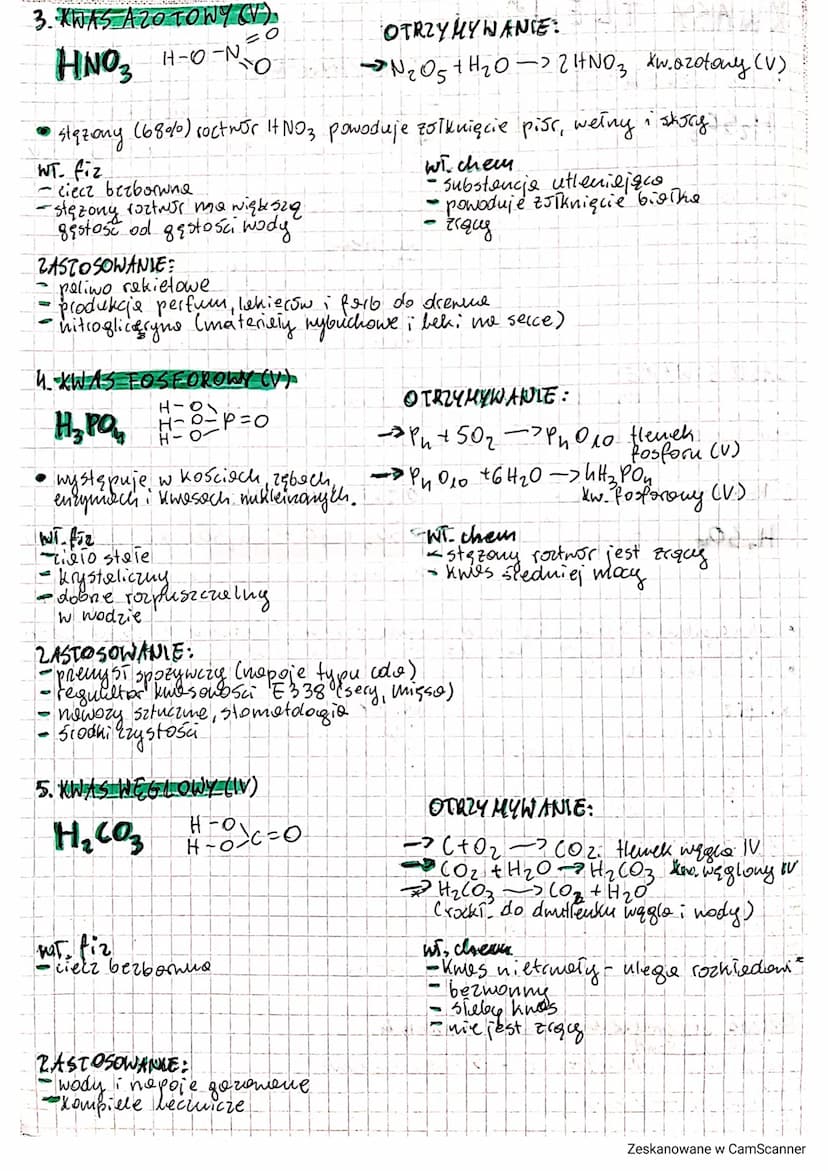 3. KWAS AZOTOWY (V)
HNO₃ H-O-N=O
O
OTRZYMYWANIE:
→ N₂O₅ + H₂O → 2HNO₃ kw. azotowy (V)
• stężony (68%) roztwór HNO₃ powoduje żółknięcie piór, wełny i skóry
wł. fiz
- ciecz bezbarwna
- stężony roztwór ma większą
gęstość od gęstości wody
wł. chem
- substancja utleniająca
- powoduje żółknięcie białka
- żrący
ZASTOSOWANIE:
- paliwo rakietowe
- produkcja perfum, lakierów i farb do drewna
- nitrogliceryna (materiały wybuchowe i leki na serce)
4. KWAS FOSFOROWY (V)
H₃PO₄
H-O
H-O-P=O
H-O
OTRZYMYWANIE:
→ P₄ + 5O₂ → P₄O₁₀ tlenek
fosforu (V)
→ P₄O₁₀ + 6H₂O → 4H₃PO₄
kw. fosforowy (V)
• występuje w kościach, zębach,
enzymach i kwasach nukleinowych.
wł. fiz
- ciało stałe
- krystaliczny
- dobrze rozpuszczalny
w wodzie
wł. chem
- stężony roztwór jest żrący
- kwas średniej mocy
ZASTOSOWANIE:
- przemysł spożywczy (napoje typu cola)
- regulator kwasowości E338 (sery, mięso)
- nawozy sztuczne, stomatologia
- środki czystości
5. KWAS WĘGLOWY (IV)
H₂CO₃
H-O
H-O C=O
OTRZYMYWANIE:
→ C + O₂ → CO₂. tlenek węgla IV
→ CO₂ + H₂O → H₂CO₃ kw. węglowy IV
→ H₂CO₃ → CO₂ + H₂O
(rozkł. do dwutlenku węgla i wody)
wł. fiz
- ciecz bezbarwna
wł. chem
- kwas nietrwały - ulega rozkładowi
- bezwonny
- słaby kwas
- nie jest żrący
ZASTOSOWANIE:
- wody i napoje gazowane
- kąpiele lecznicze
Zeskanowane w CamScanner